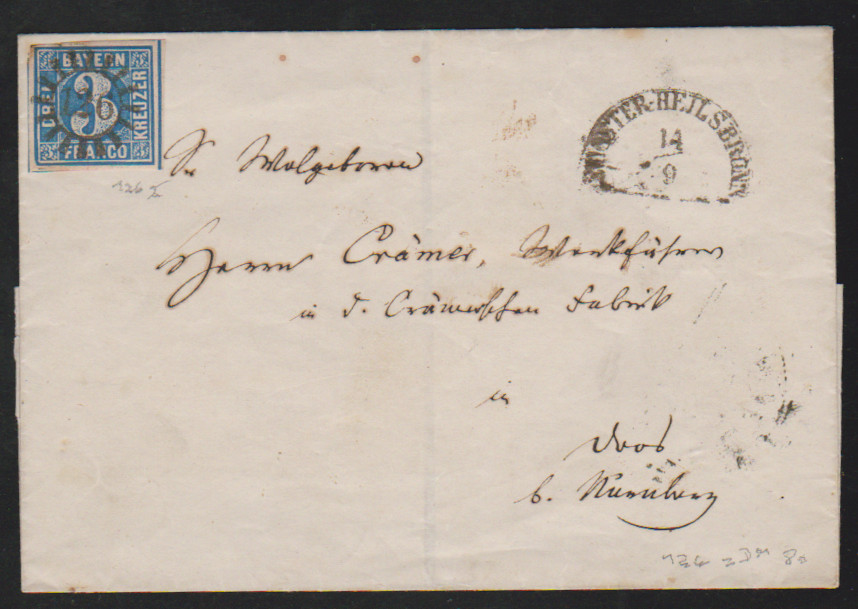 BAYERN
DREI
3
KREUZER
FRANCO
126
HEILSBRONN
14
9
Sr Wolgeboren
Herrn Crämer, Werkführer
in d. Crämerschen Fabrik
in
Doos
b. Nürnberg
126